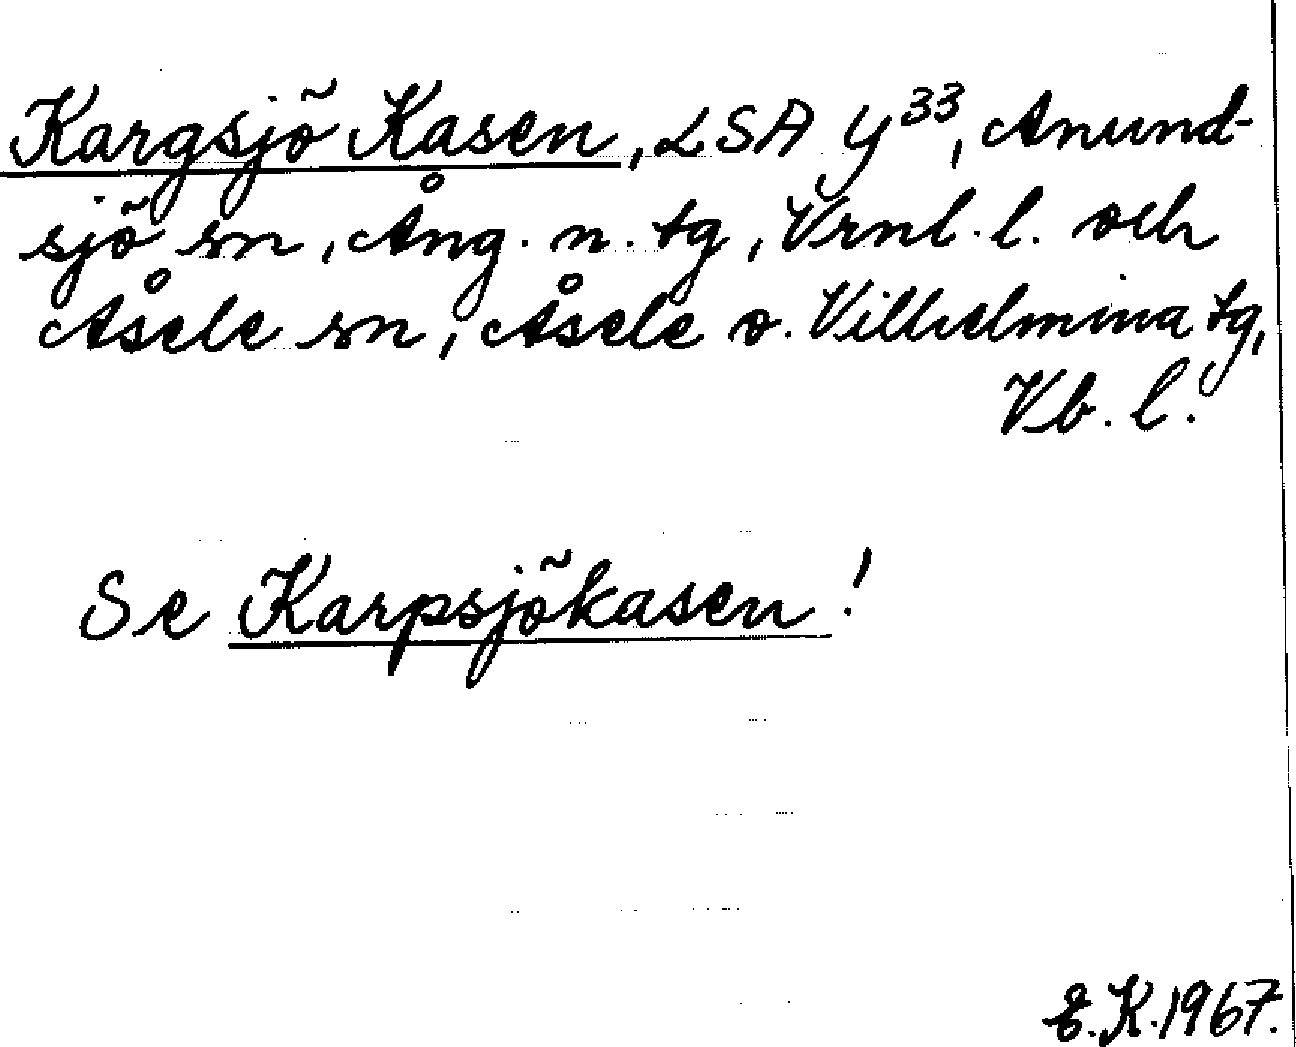 Kargsjö Kasen, LSA Y³³, Anund-
sjö sn, Ång. n. tg, Vrnl. l. och
Åsele sn, Åsele o. Vilhelmina tg,
Vb. l.
Se Karpsjökasen!
E.K. 1967.